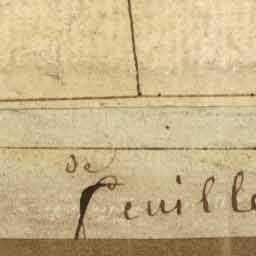 de
feuille